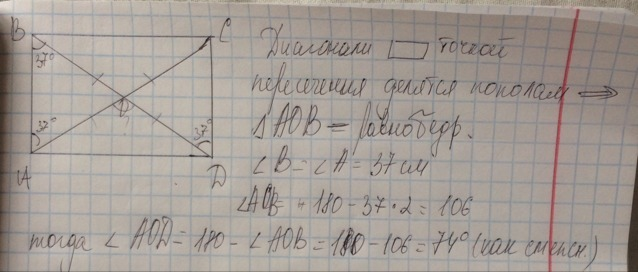 B C
37°
37° 37°
A D
Диагонали ▭ точкой
пересечения делятся пополам ⇒
Δ AOB = равнобедр.
∠B = ∠A = 37 см
∠AOB = 180 - 37 • 2 = 106
тогда ∠ AOD = 180 - ∠AOB = 180 - 106 = 74° (как смежн.)